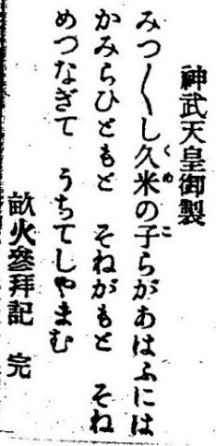 神武天皇御製
みつ〳〵し久米の子らがあはふには
かみらひともと　そねがもと　そね
めつなぎて　うちてしやまむ
畝火參拜記　完